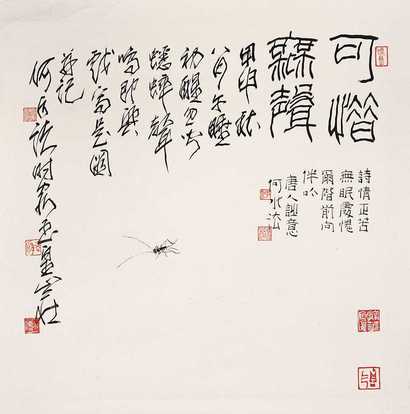 可惜
無聲
詩情正苦
無眠處愧
爾階前相
伴吟
唐人詩意
何水法
甲申秋
八月午睡
初醒忽聞
蟋蟀聲
鳴即興
戲寫是圖
并記
何水法時客